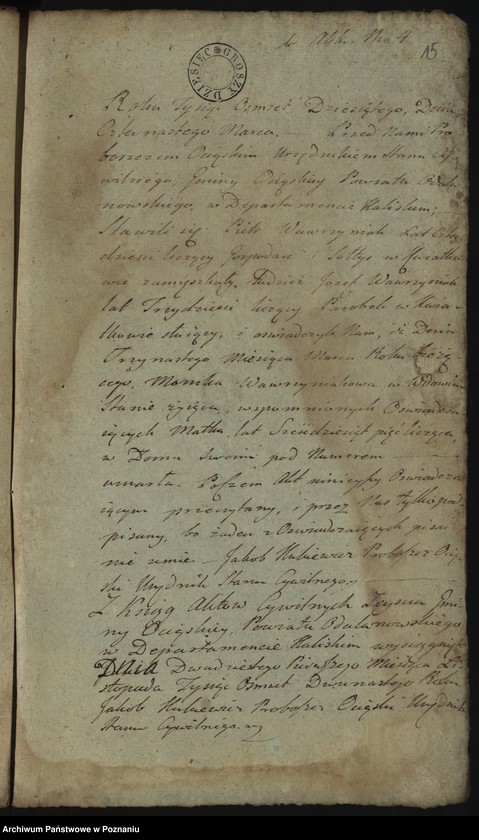 15
DZIESIĘC GROSZY
Roku Tysiąc Osmset Dziesiątego, Dnia
Czternastego Marca. — Przed Nami Pro
boszczem Ociąskim Urzędnikiem Stanu Cy
wilnego, Gminy Ociąskiey Powiatu Odala
nowskiego, w Departamencie Kaliskim;
Stawili się Piotr Wawrzyniak Lat Czter
dzieści liczący Gospodarz i Sołtys w Kwiatko
wie zamieszkały, Tudzież Jozef Wawrzyniak
lat Trzydzieści liczący Parobek w Kwia
tkowie służący, i oswiadczyli Nam, iż Dnia
Trzynastego Miesiąca Marca Roku bieżą
cego, Wawrzyniakowa w Wdowim
Stanie żyjąca, wspomnionych Oswiadcza
iących Matka, lat Sześćdziesiąt pięć licząca,
w Domu swoim pod Numerem —
umarła. Poczem Akt ninieyszy Oswiadcza
iącym przeczytany, i przez Nas tylko pod
pisany, bo żaden z Oswiadczaiących pisać
nie umie. — Jakob Proboszcz Ocią
ski Urzędnik Stanu Cywilnego
Z Xiąg Aktow Cywilnych Zeyscia Gmi
ny Ociąskiey, Powiatu Odalanowskiego
w Departamencie Kaliskim wyciągnięto
Dnia Dwudziestego Pierwszego Miesiąca Li
stopada Tysiąc Osmset Dwunastego Roku
Jakob Proboszcz Ociąski Urzędnik
Stanu Cywilnego
Archiwum Państwowe w Poznaniu